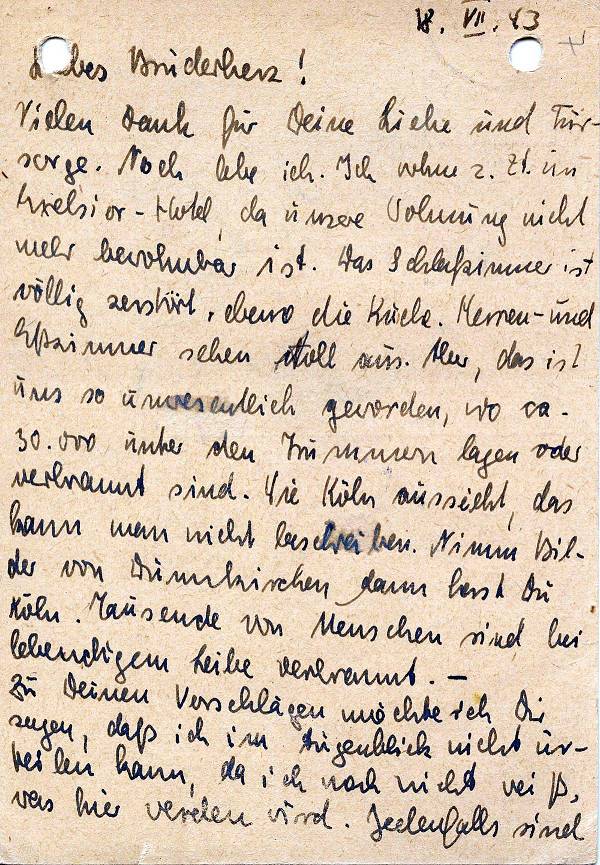 18. VII. 43
Liebes Bruderherz!
Vielen Dank für Deine Liebe und Für-
sorge. Noch lebe ich. Ich wohne z. Zt. im
Excelsior-Hotel, da unsere Wohnung nicht
mehr bewohnbar ist. Das Schlafzimmer ist
völlig zerstört, ebenso die Küche. Herren- und
Eßzimmer sehen toll aus. Aber, das ist
uns so unwesentlich geworden, wo ca.
30.000 unter den Trümmern lagen oder
verbrannt sind. Wie Köln aussieht, das
kann man nicht beschreiben. Nimm Bil-
der von Dünnkirchen, dann hast Du
Köln. Tausende von Menschen sind bei
lebendigem Leibe verbrannt. —
Zu Deinen Vorschlägen möchte ich Dir
sagen, daß ich im Augenblick nicht ur-
teilen kann, da ich noch nicht weiß,
was hier werden wird. Jedenfalls sind